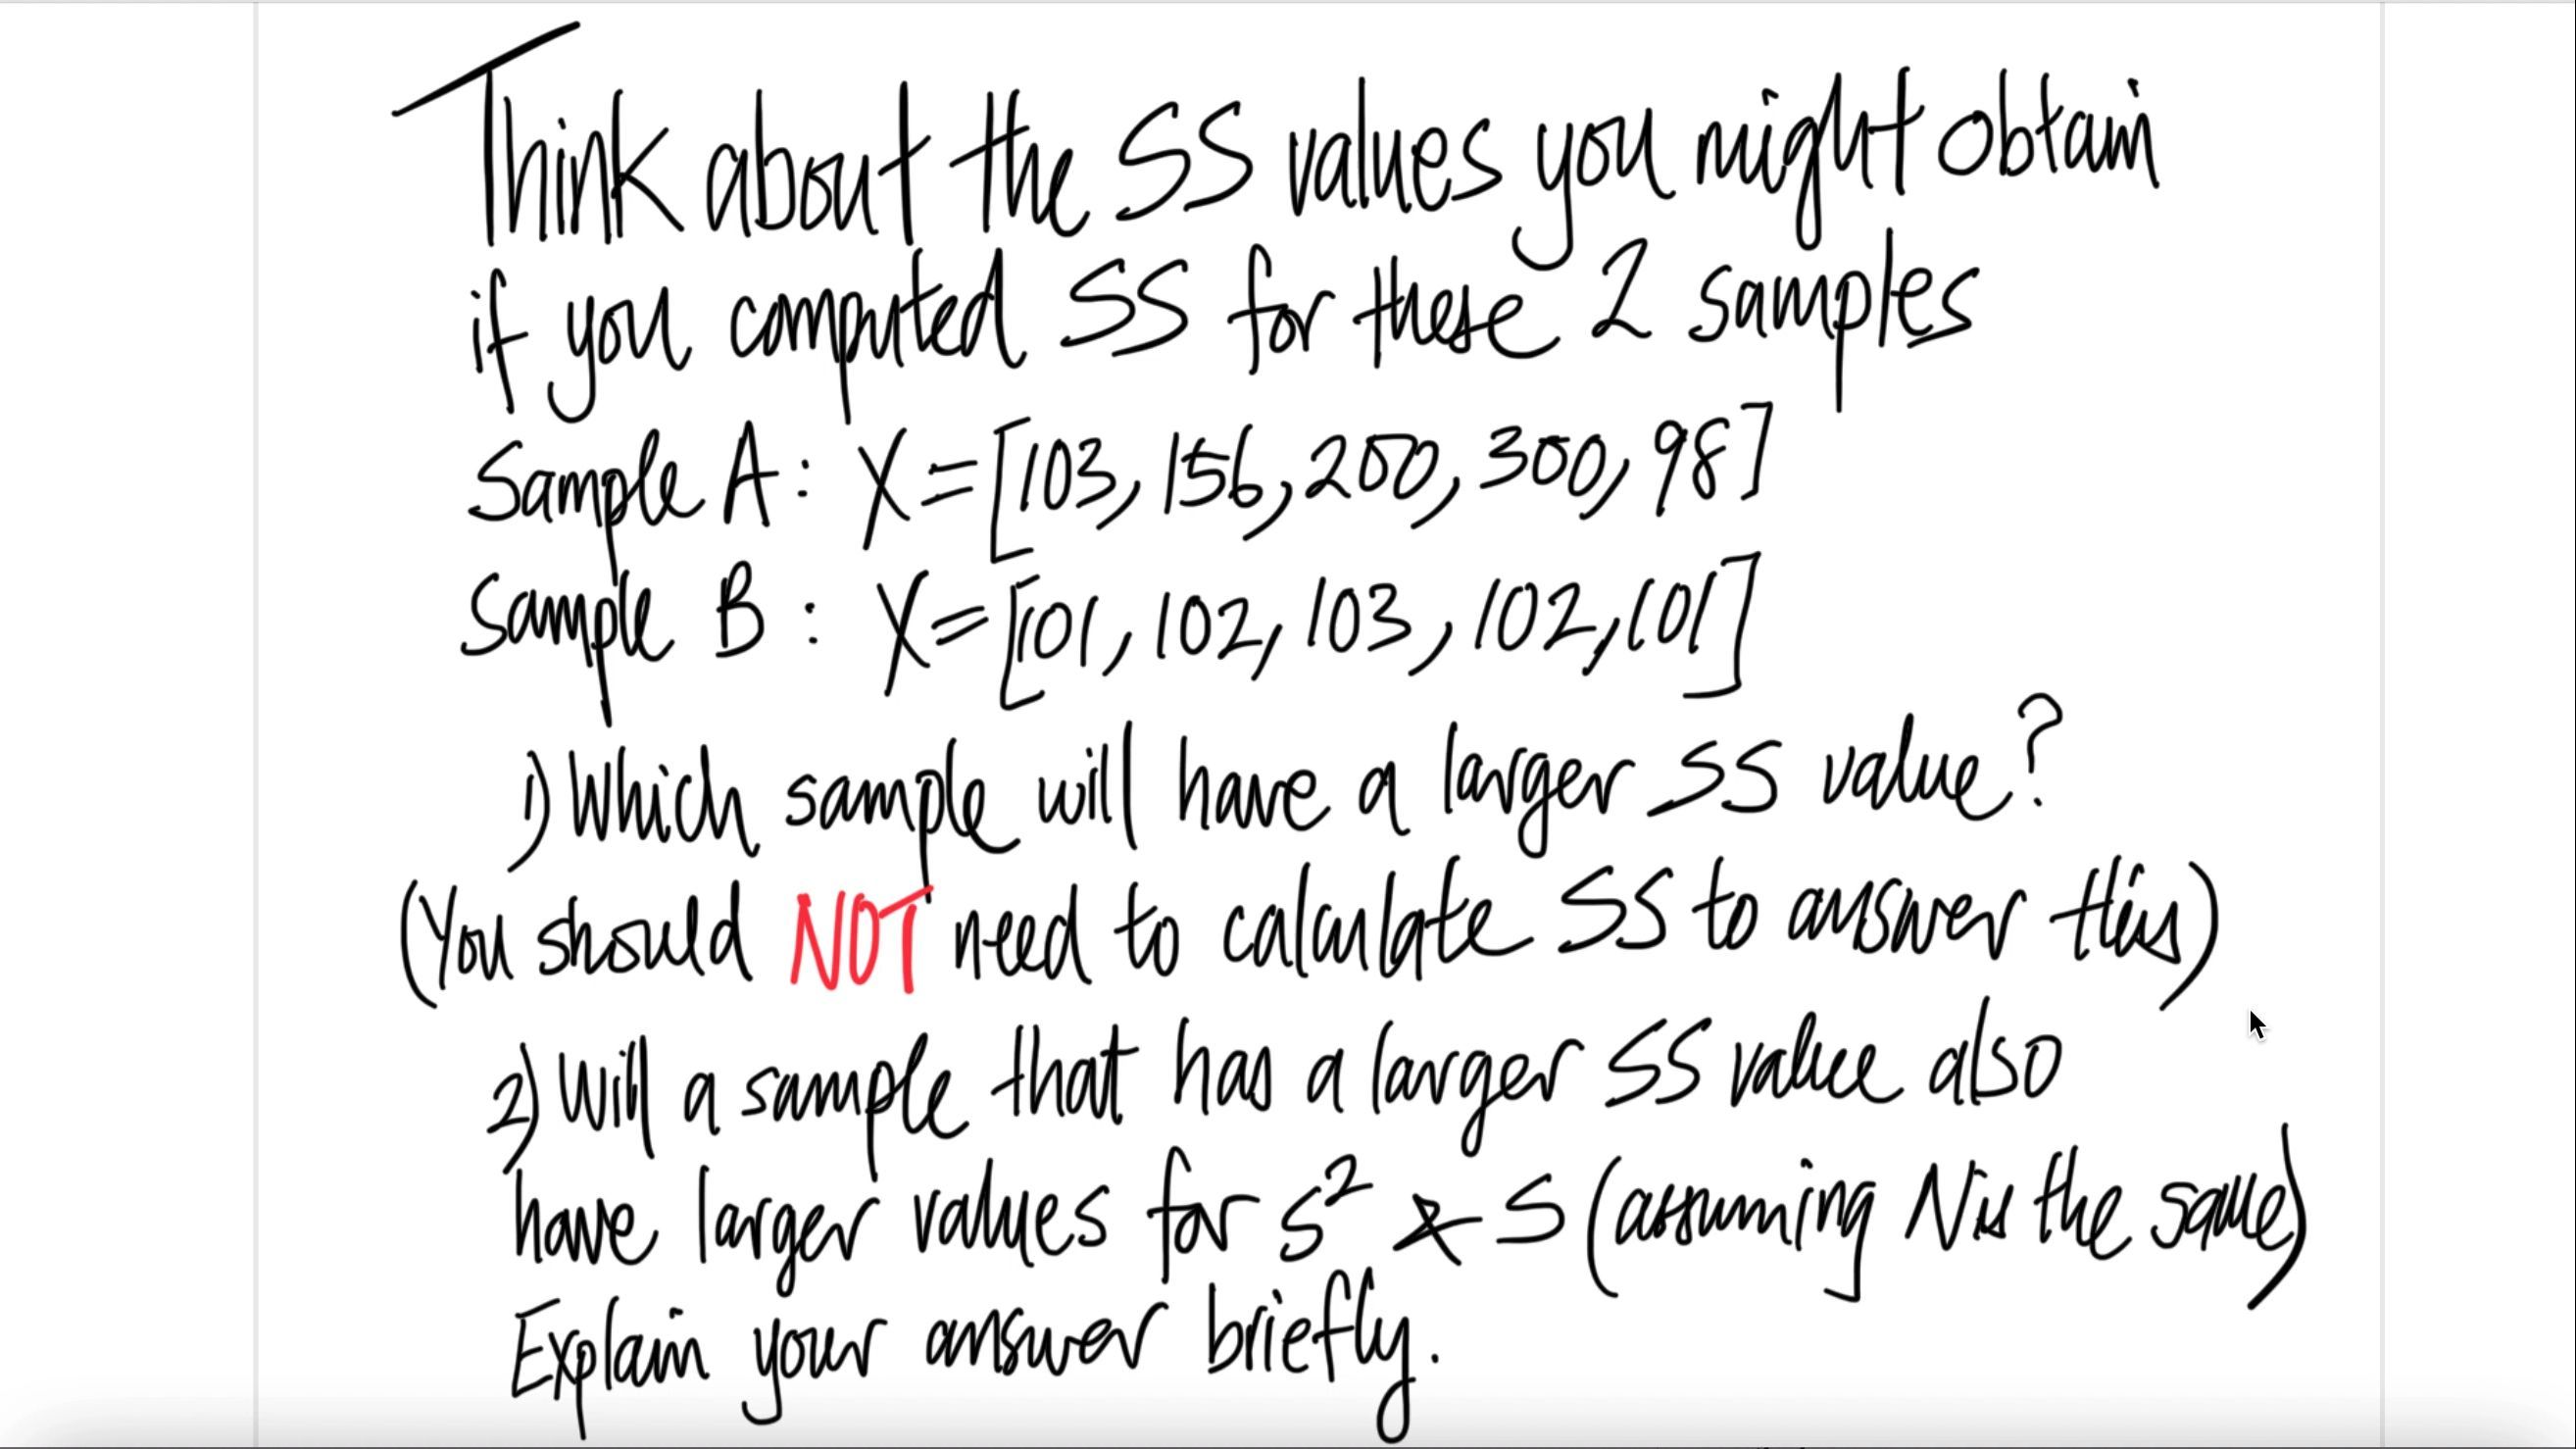 Think about the SS values you might obtain
if you computed SS for these 2 samples
Sample A: X=[103, 156, 200, 300, 98]
Sample B: X=[101, 102, 103, 102, 101]
1) Which sample will have a larger SS value?
(You should NOT need to calculate SS to answer this)
2) Will a sample that has a larger SS value also
have larger values for s² & s (assuming N is the same)
Explain your answer briefly.